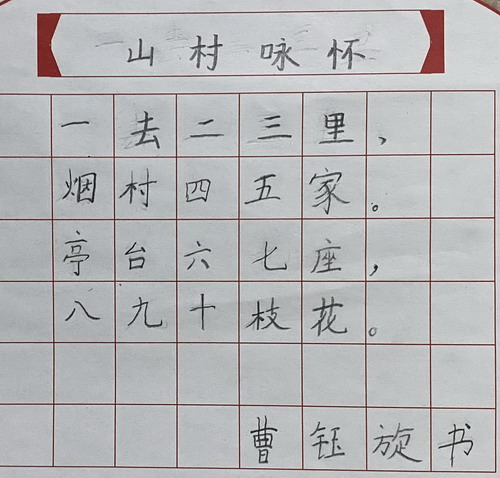 山村咏怀
一去二三里，
烟村四五家。
亭台六七座，
八九十枝花。
曹钰旋书